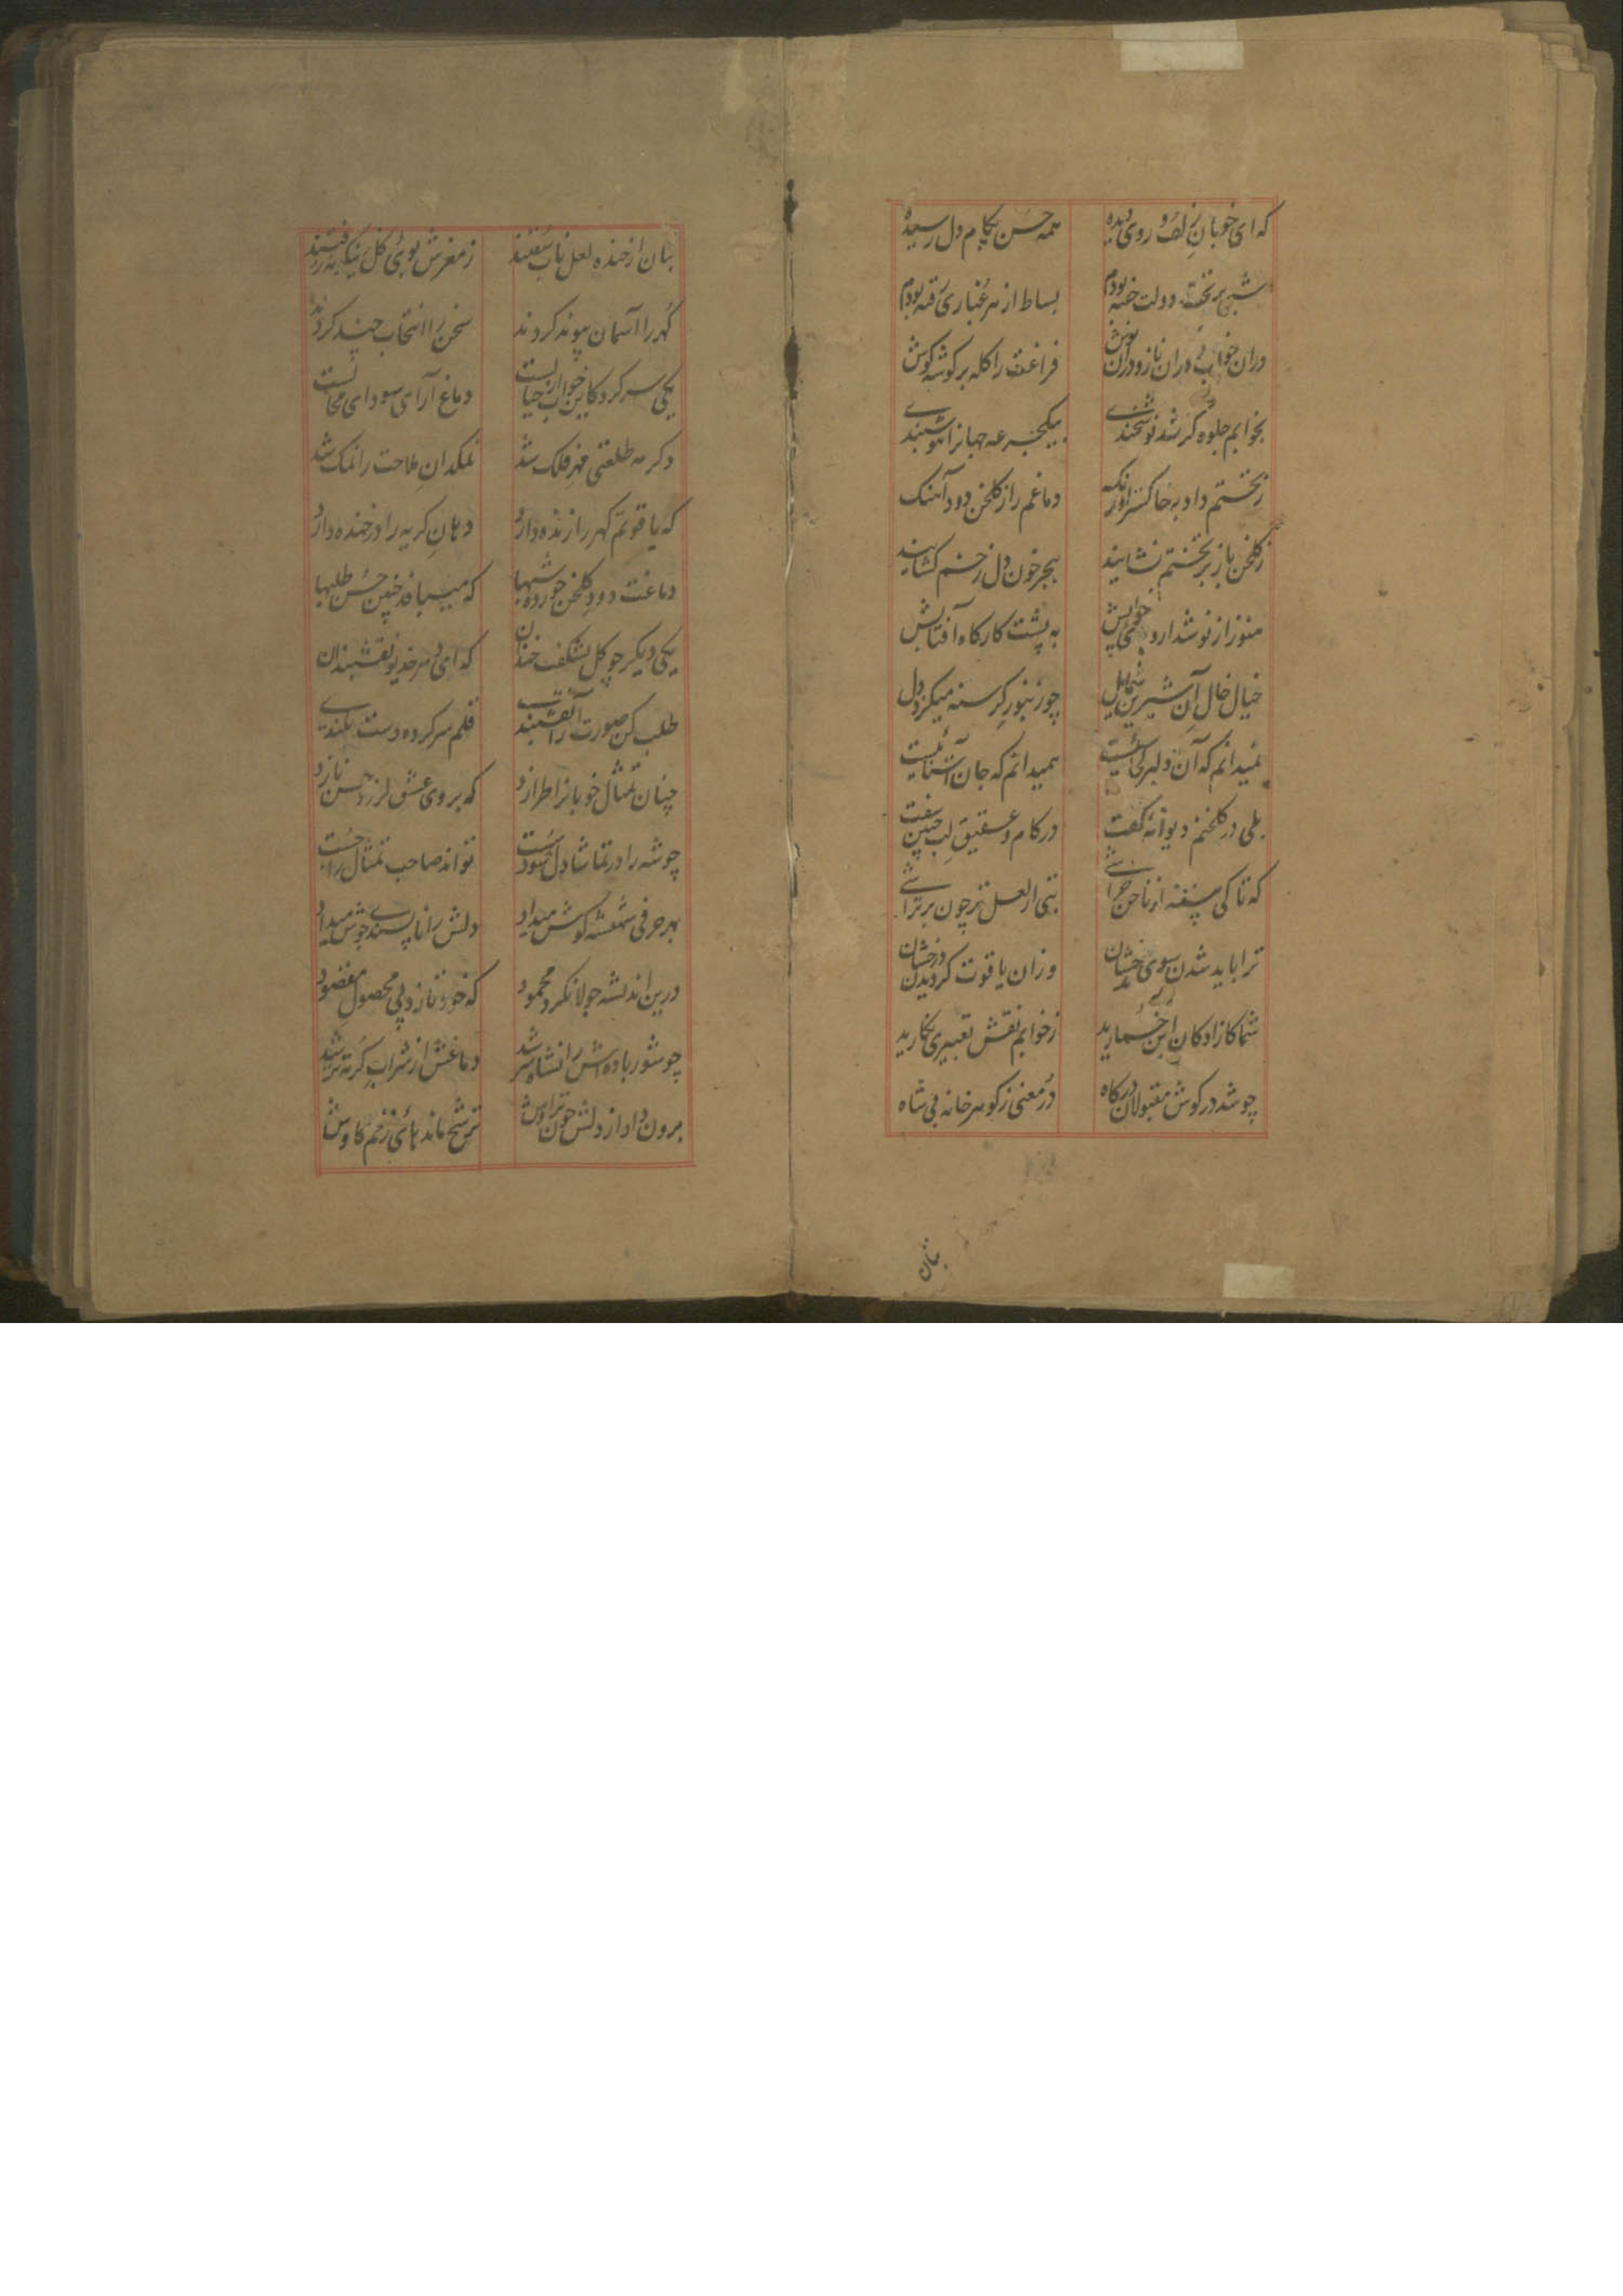 که ای خوبان زلف و روی دیده همه حسن بکام دل رسیده
شبی بر تخت دولت خفته بودم بساط از هر غباری رفته بودم
دران خواب و دران ناز و دران نوش فراغت را کله بر گوشه گوش
بخوابم جلوه گر شد نوشخندی بیکجرعه جهانرا هوشبندی
ز تختم داد به خاکستر اورنگ دماغم را ز کلخن دود آهنگ
ز کلخن باز بر تختم نشانید بهجر خون دل زخم کشانید
هنوز از نوشدارو خوابش به پشت کارگاه آفتابش
خیال خال آن شیرین شمایل چو زنبور کرسنه میکزد دل
نمیدانم که آن دلبر کجائیست همیدانم که جان را آشنائیست
بلی در کلخنم دیوانه گفت در کام و عقیق لب چنین سفت
که تا کی سفته از ناخن خراشی بتی از لعل تر چون بر تراشی
ترا باید شدن سوی بدخشان وزان یاقوت کردیدن درخشان
شما کازادکان این خمارید ز خوابم نقش تعبیری بکارید
چو شد در گوش مقبولان درگاه در معنی ز گوهر خانه شاه
بتان
بتان از خنده لعل ناب سفتند ز مغزش بوی گل
گهر را آسمان پیوند کردند سخن را انتخاب چند کردند
یکی سر کرد کاین خواب خیالست دماغ آرای سودای محالست
دگر مه طلعتی مهر فلک شد نمکدان ملاحت را نمک شد
که یاقوتم گهر را زنده دارد دهان گریه را در خنده دارد
دماغت دود کلخن خورده شبها که میباند چنین حسن طلبها
یکی دیگر چو گل بشکفت خندان که ای در هر خدیو نقشبندان
طلب کن صورت را نقشبندی قلم سر کرده دست بلندی
چنان تمثال خوبانرا طرازد که بر روی عشق لرزد حسن نازد
چو شه را در تماشا دل شود سست تواند صاحب تمثال را جست
بهر حرفی شهنشه گوش میداد دلش را ناپسندی جوش میداد
درین اندیشه جولانکرد محمود که خود تازد پی محصول مقصود
چو شور باده اش را نشاه سر شد دماغش از شراب گریه تر شد
برون داد از دلش خون تراوش ترشح ماند پای زخم کاوش